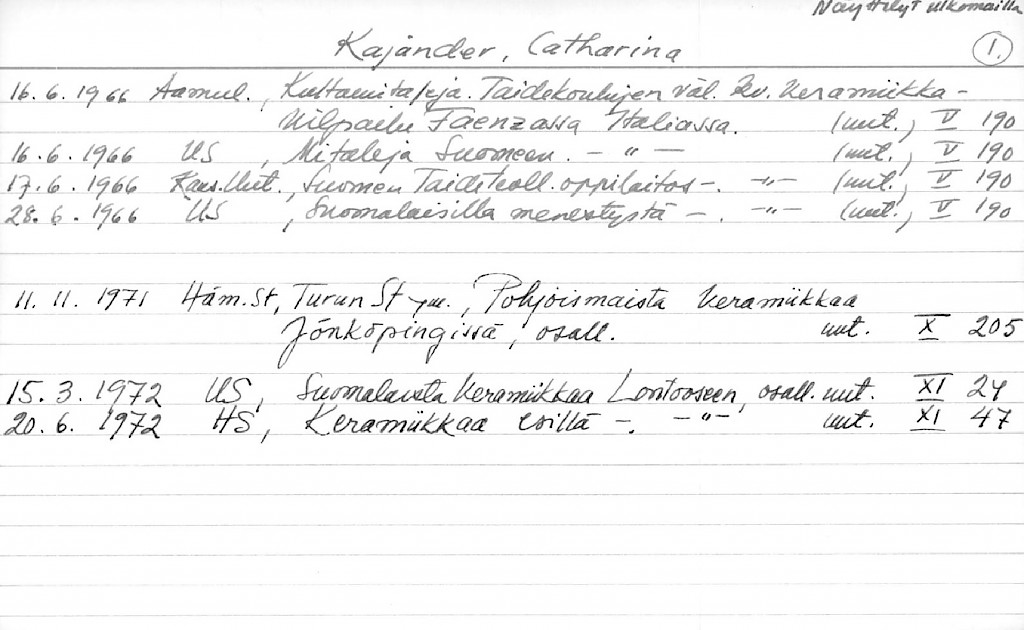 Näyttelyt ulkomailla
Kajander, Catharina 1.
16. 6. 1966 Aamul., Kultamitaleja. Taidekoulujen väl. kv. keramiikka-
kilpailu Faenzassa Italiassa. (uut.), V 190
16. 6. 1966 US, Mitaleja Suomeen. - " - (uut.), V 190
17. 6. 1966 Kans.Uut., Suomen Taideteoll. oppilaitos -. - " - (uut.), V 190
28. 6. 1966 US, Suomalaisilla menestystä -. - " - (uut.), V 190
11. 11. 1971 Häm.St, Turun St ym., Pohjoismaista keramiikkaa
Jönköpingissä, osall. uut. X 205
15. 3. 1972 US, Suomalaista keramiikkaa Lontooseen, osall. uut. XI 24
20. 6. 1972 HS, Keramiikkaa esillä -. - " - uut. XI 47